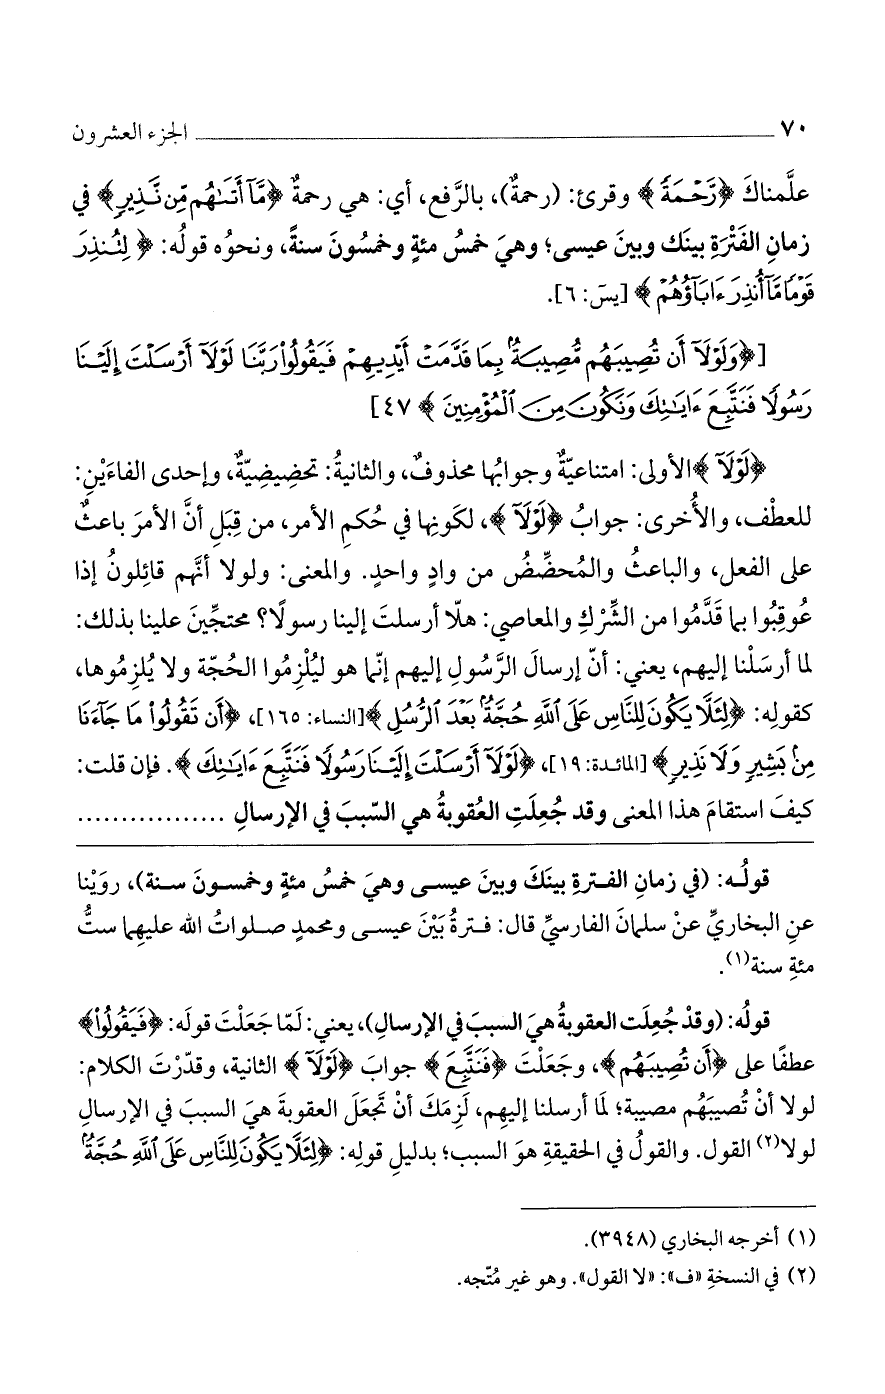 ٧٠ ــــــــــــــــــــــــــــــــــــــــــــــــــــــــ الجزء العشرون
علَّمناكَ ﴿رَّحْمَةً﴾ وقرئ: (رحمةٌ)، بالرَّفع، أي: هي رحمةٌ ﴿مَّآ أَتَىٰهُم مِّن نَّذِيرٍ﴾ في
زمانِ الفَتْرَةِ بينَك وبينَ عيسى؛ وهيَ خمسُ مئةٍ وخمسُونَ سنةً، ونحوُه قولُه: ﴿لِتُنذِرَ
قَوْمًا مَّآ أُنذِرَ ءَابَآؤُهُمْ﴾ [يسَ: ٦].
[﴿وَلَوْلَآ أَن تُصِيبَهُم مُّصِيبَةٌۢ بِمَا قَدَّمَتْ أَيْدِيهِمْ فَيَقُولُواْ رَبَّنَا لَوْلَآ أَرْسَلْتَ إِلَيْنَا
رَسُولًا فَنَتَّبِعَ ءَايَٰتِكَ وَنَكُونَ مِنَ ٱلْمُؤْمِنِينَ﴾ ٤٧]
﴿لَوْلَآ﴾ الأولى: امتناعيّةٌ وجوابُها محذوفٌ، والثانيةُ: تحضيضِيّةٌ، وإحدى الفاءَيْنِ:
للعطْف، والأُخرى: جوابُ ﴿لَوْلَآ﴾، لكَونِها في حُكمِ الأمر، من قِبَلِ أنَّ الأمرَ باعثٌ
على الفعل، والباعثُ والمُحضِّضُ من وادٍ واحدٍ. والمعنى: ولولا أنَّهم قائِلونُ إذا
عُوقِبُوا بما قَدَّمُوا من الشِّرْكِ والمعاصي: هلّا أرسلتَ إلينا رسولًا؟ محتجِّينَ علينا بذلك:
لما أرسَلْنا إليهم، يعني: أنّ إرسالَ الرَّسُولِ إليهم إنّما هو ليُلْزِمُوا الحُجّة ولا يُلزِمُوها،
كقولِه: ﴿لِئَلَّا يَكُونَ لِلنَّاسِ عَلَى ٱللَّهِ حُجَّةٌۢ بَعْدَ ٱلرُّسُلِ﴾ [النساء: ١٦٥]، ﴿أَن تَقُولُواْ مَا جَآءَنَا
مِنۢ بَشِيرٍ وَلَا نَذِيرٍ﴾ [المائدة: ١٩]، ﴿لَوْلَآ أَرْسَلْتَ إِلَيْنَا رَسُولًا فَنَتَّبِعَ ءَايَٰتِكَ﴾. فإن قلت:
كيفَ استقامَ هذا المعنى وقد جُعِلَتِ العُقوبةُ هي السّببَ في الإرسالِ .................
قولُـه: (في زمانِ الفـترةِ بينَكَ وبينَ عيسـى وهيَ خمسُ مئةٍ وخمسـونَ سـنة)، روَيْنا
عنِ البخاريِّ عنْ سلمانَ الفارسيِّ قال: فـترةُ بَيْنَ عيسـى ومحمدٍ صـلواتُ الله عليهِما ستُّ
مئةِ سنة(١).
قولُه: (وقدْ جُعِلَت العقوبةُ هيَ السببَ في الإرسالِ)، يعني: لَمّا جَعَلْتَ قولَه: ﴿فَيَقُولُواْ﴾
عطفًا على ﴿أَن تُصِيبَهُم﴾، وجَعَلْتَ ﴿فَنَتَّبِعَ﴾ جوابَ ﴿لَوْلَآ﴾ الثانية، وقدّرْتَ الكلام:
لولا أنْ تُصيبَهُم مصيبة؛ لما أرسلنا إليهِم، لَزِمَكَ أنْ تَجعَلَ العقوبةَ هيَ السببَ في الإرسالِ
لولا(٢) القول. والقولُ في الحقيقةِ هوَ السبب؛ بدليلِ قولِه: ﴿لِئَلَّا يَكُونَ لِلنَّاسِ عَلَى ٱللَّهِ حُجَّةٌۢ
(١) أخرجه البخاري (٣٩٤٨).
(٢) في النسخةِ «ف»: «لا القول». وهو غير مُتّجه.